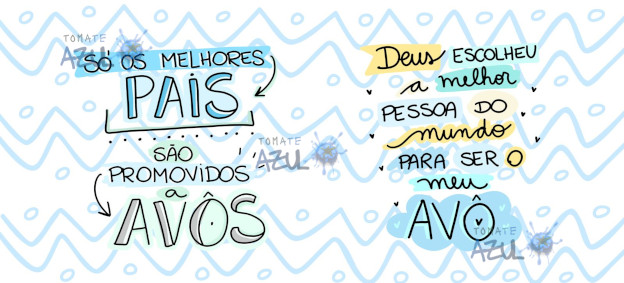 TOMATE
AZUL
SÓ OS MELHORES
PAIS
SÃO
PROMOVIDOS
a
AVÔS
TOMATE
AZUL
Deus ESCOLHEU
a melhor
PESSOA DO
mundo
PARA SER O
meu
AVÔ
TOMATE
AZUL